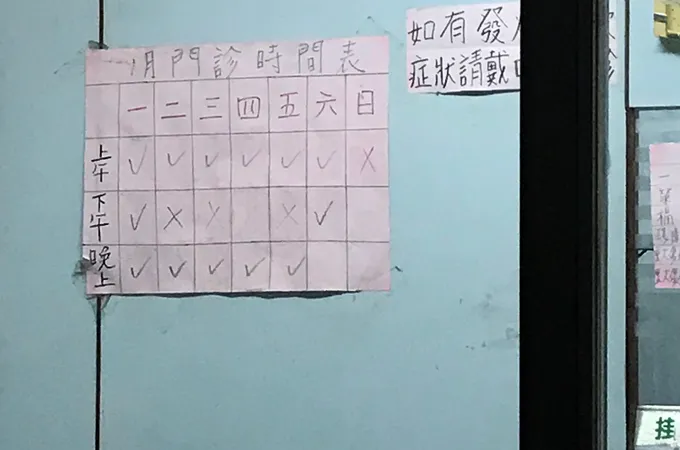 月門診時間表
一 二 三 四 五 六 日
上午 ✓ ✓ ✓ ✓ ✓ ✓ X
下午 ✓ X X X ✓
晚上 ✓ ✓ ✓ ✓ ✓
如有發
症狀請戴
挂